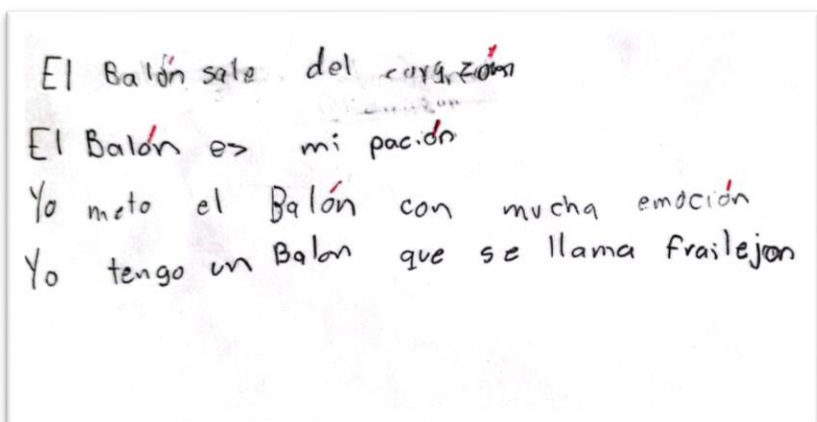 El Balón sale del corazón
El Balón es mi pación
Yo meto el Balón con mucha emoción
Yo tengo un Balon que se llama frailejon